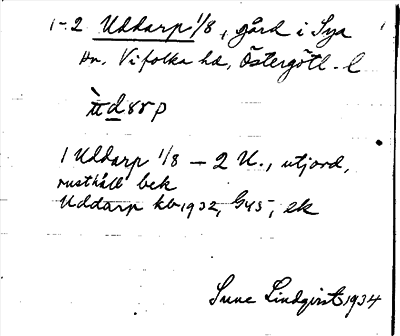 1-2 Uddarp 1/8, gård i Sya
sn. Vifolka hd, Östergötl. l
1 Uddarp 1/8 - 2 U., utjord,
rusthåll bek
Uddarp kb 1932, G45, ek
Sune Lindqvist 1934